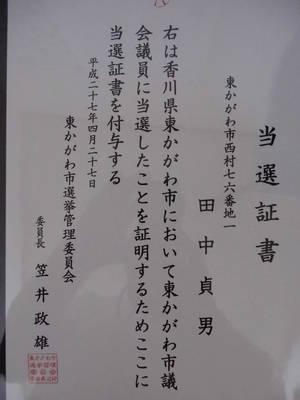 当選証書
東かがわ市西村七六番地一
田中貞男
右は香川県東かがわ市において東かがわ市議
会議員に当選したことを証明するためここに
当選証書を付与する
平成二十七年四月二十七日
東かがわ市選挙管理委員会
委員長 笠井政雄